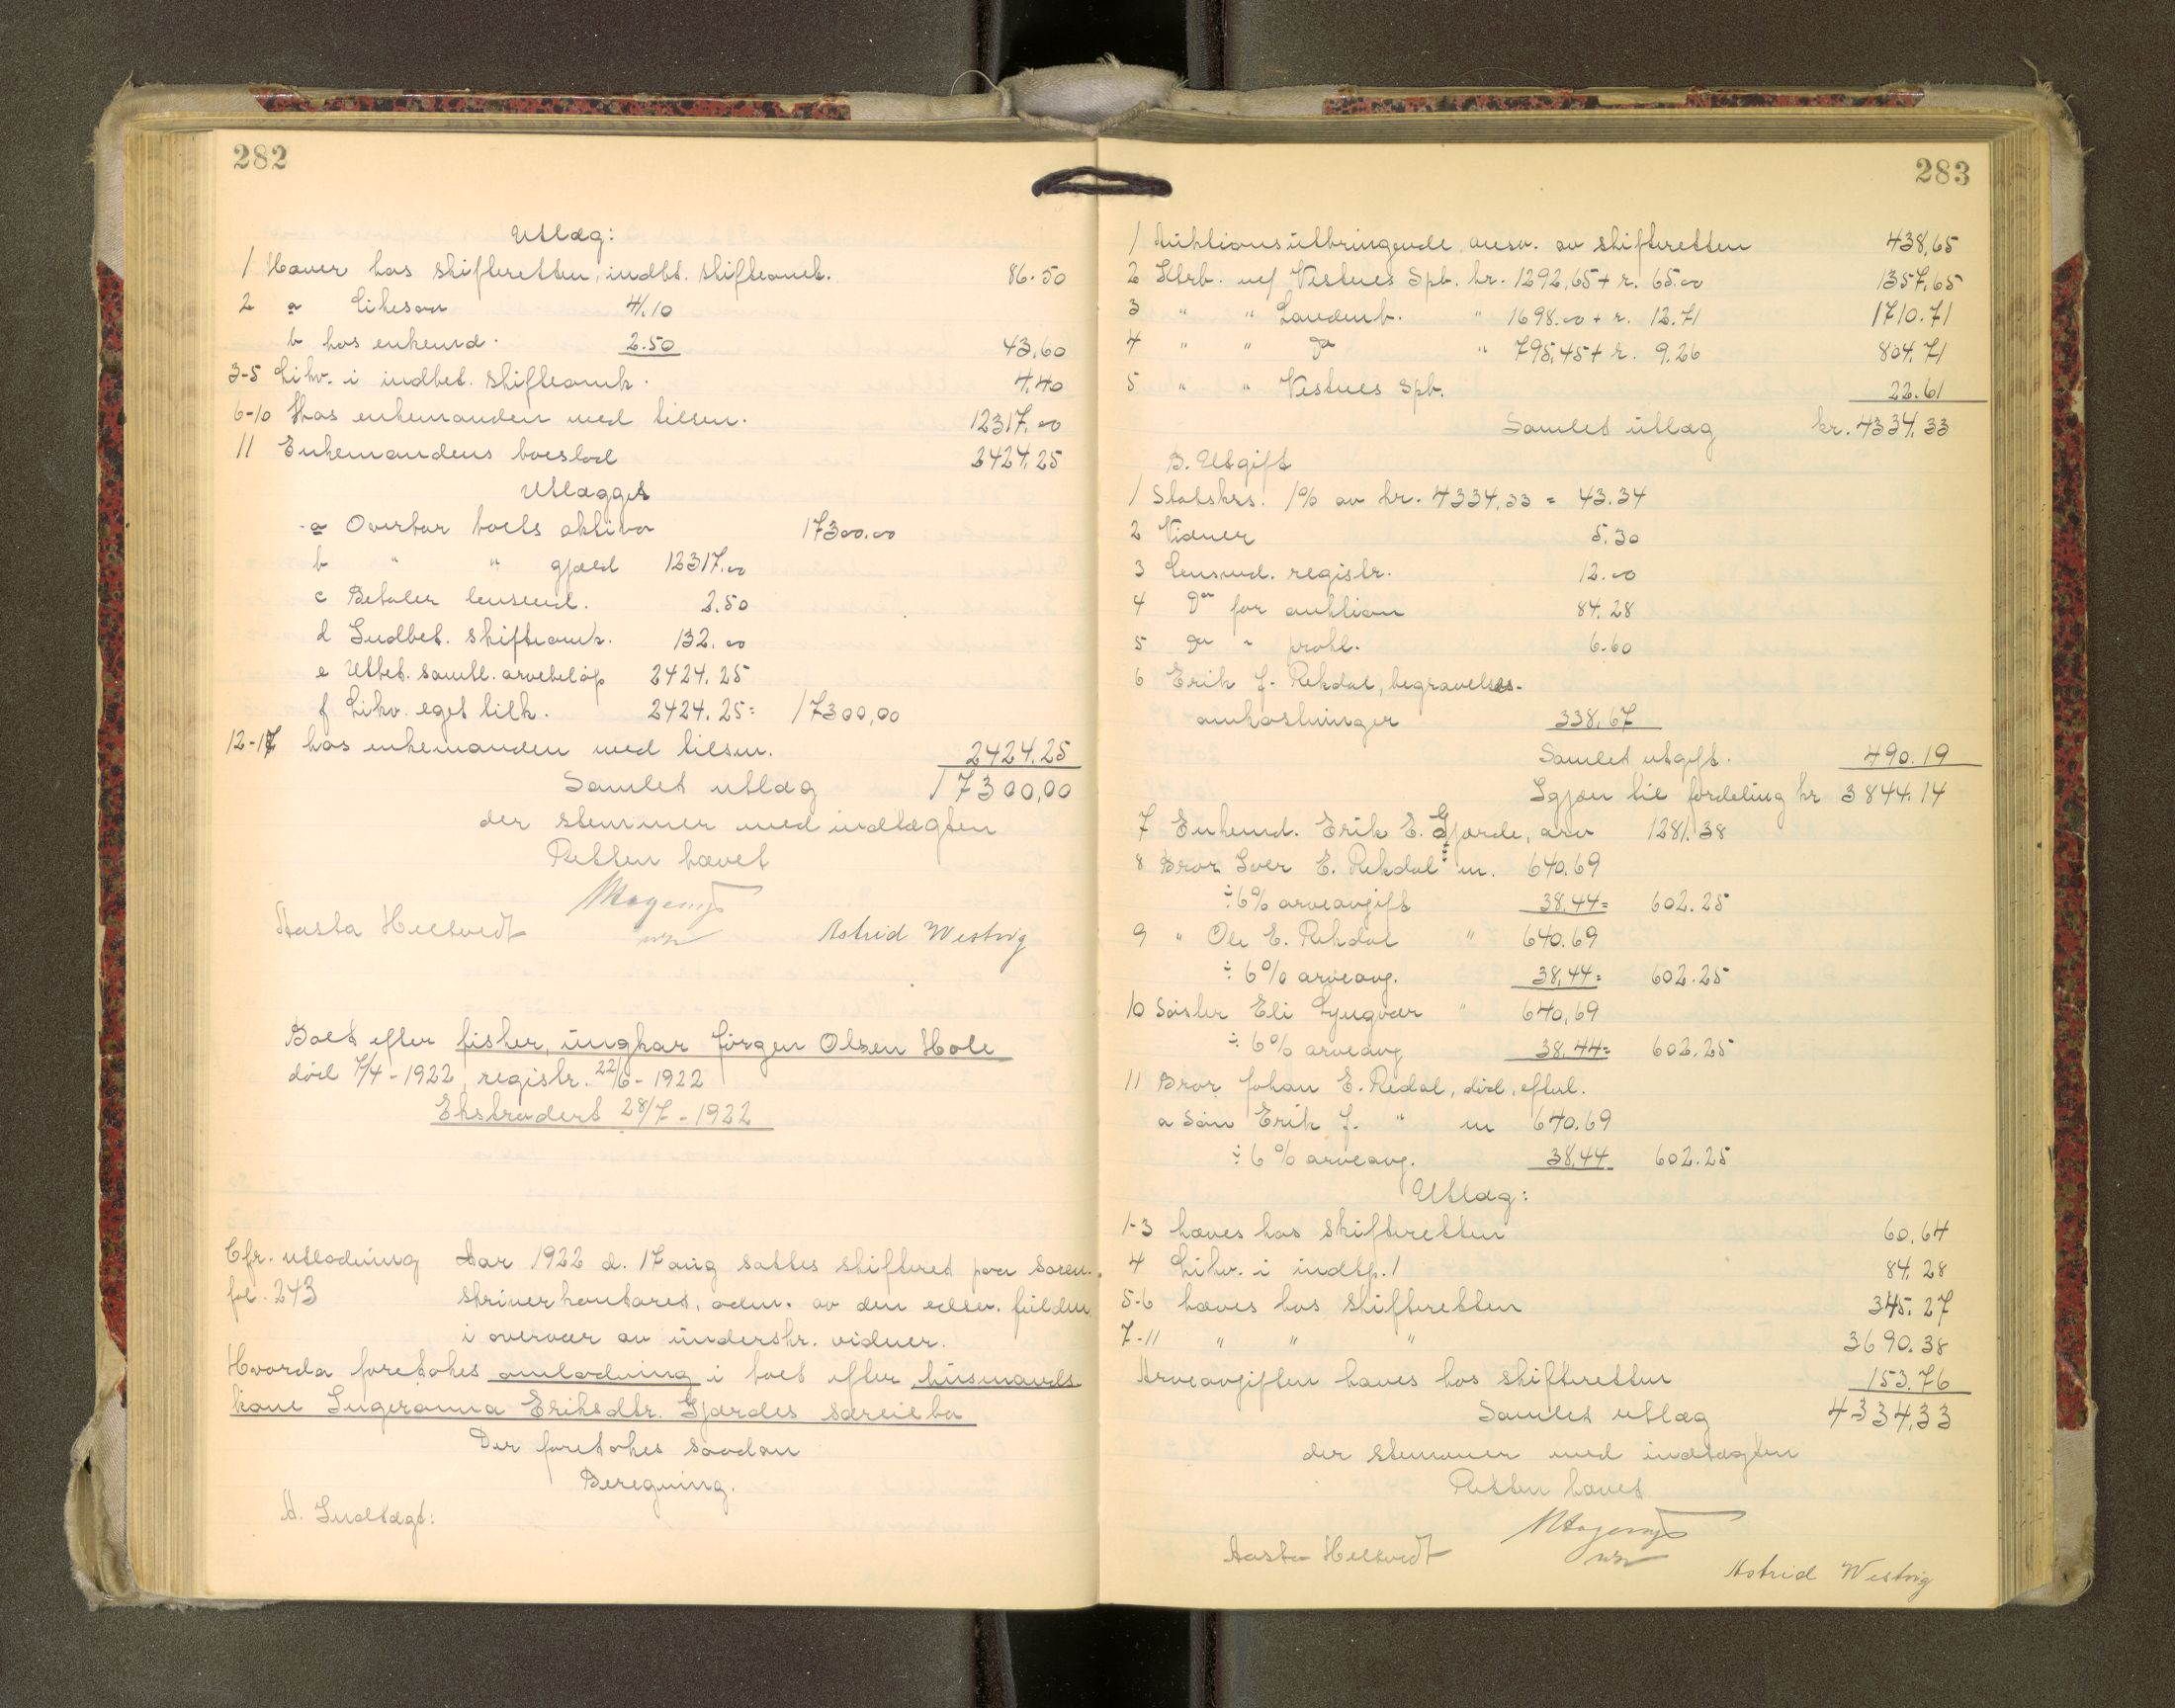 282
Utlæg:
1 Hæver hos skifteretten, indbt. skifteomk. 86.50
2 a Likesaa 41.10
b hos enkemd. 2.50 43,60
3-5 Likv. i indbet. skifteomk. 4.40
6-10 Hos enkemanden med tilsm. 12317.00
11 Enkemandens boeslod 2424.25
Utlægges
a Overtar boets aktiva 17300.00
b " " gjæld 12317.00
c Betaler lensmd. 2.50
d Indbet. skifteomk. 132.00
e Utbet. samtl. arvebeløp 2424.25
f Likv. eget tilk. 2424.25 = 17300,00
12-17 hos enkemanden med tilsm. 2424.25
Samlet utlæg 17300,00
der stemmer med indtægten
Retten hævet
Aasta Helltvedt Astrid Westvig
Boet efter fisker, ungkar Jørgen Olsen Hole
död 7/4-1922, registr. 22/6-1922
Ekstradert 28/7-1922
Cfr. utlodning Aar 1922 d. 17 aug sattes skifteret paa soren-
fol. 243 skriverkontoret, adm. av den edsv. fuldm
i overvær av underskr. vidner.
Hvorda foretokes omlodning i boet efter husmands
kone Ingeranna Eriksdtr. Gjærdes særeiebo
Der foretokes saadan
Beregning.
A. Indtægt:
283
1 Auktionsutbringende ansv. av skifteretten 438,65
2 Ktrb. m/ Vestnes Spb. kr. 1292,65 + r. 65.00 1357,65
3 " " Landmb. " 1698.00 + r. 12.71 1710.71
4 " " Do " 795,45 + r. 9.26 804.71
5 " " Vestnes Spb. 22.61
Samlet utlæg kr. 4334.33
B. Utgift
1 Statskrs. 1% av kr. 4334,33 = 43.34
2 Vidner 5.30
3 Lensmd. registr. 12.00
4 Do for auktion 84.28
5 Do " prokl. 6.60
6 Erik J. Rekdal, begravelses-
omkostninger 338,67
Samlet utgift. 490.19
Igjen til fordeling kr 3844.14
7 Enkemd. Erik E. Gjærde, arv 1281.38
8 Bror Iver E. Rekdal m. 640.69
÷ 6% arveavgift 38.44 = 602.25
9 " Ole E. Rekdal " 640.69
÷ 6% arveavg. 38,44 = 602.25
10 Søster Eli Lyngvær " 640,69
÷ 6% arveavg 38.44 = 602.25
11 Bror Johan E. Redal, död, eftul.
a Søn Erik J. " m 640.69
÷ 6% arveavg. 38,44 602.25
Utlæg:
1-3 hæves hos skifteretten 60.64
4 Likv. i indtp. 1 84.28
5-6 hæves hos skifteretten 345.27
7-11 " " " 3690.38
Arveavgiften hæves hos skifteretten 153.76
Samlet utlæg 4334,33
der stemmer med indtægten
Retten hævet
Aasta Helltvedt Astrid Westvig